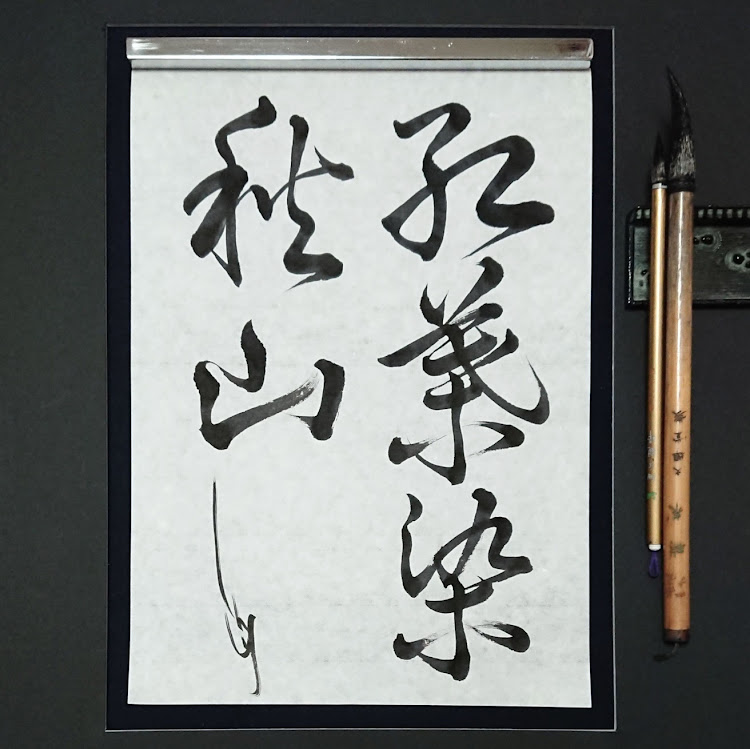 紅葉染
秋山